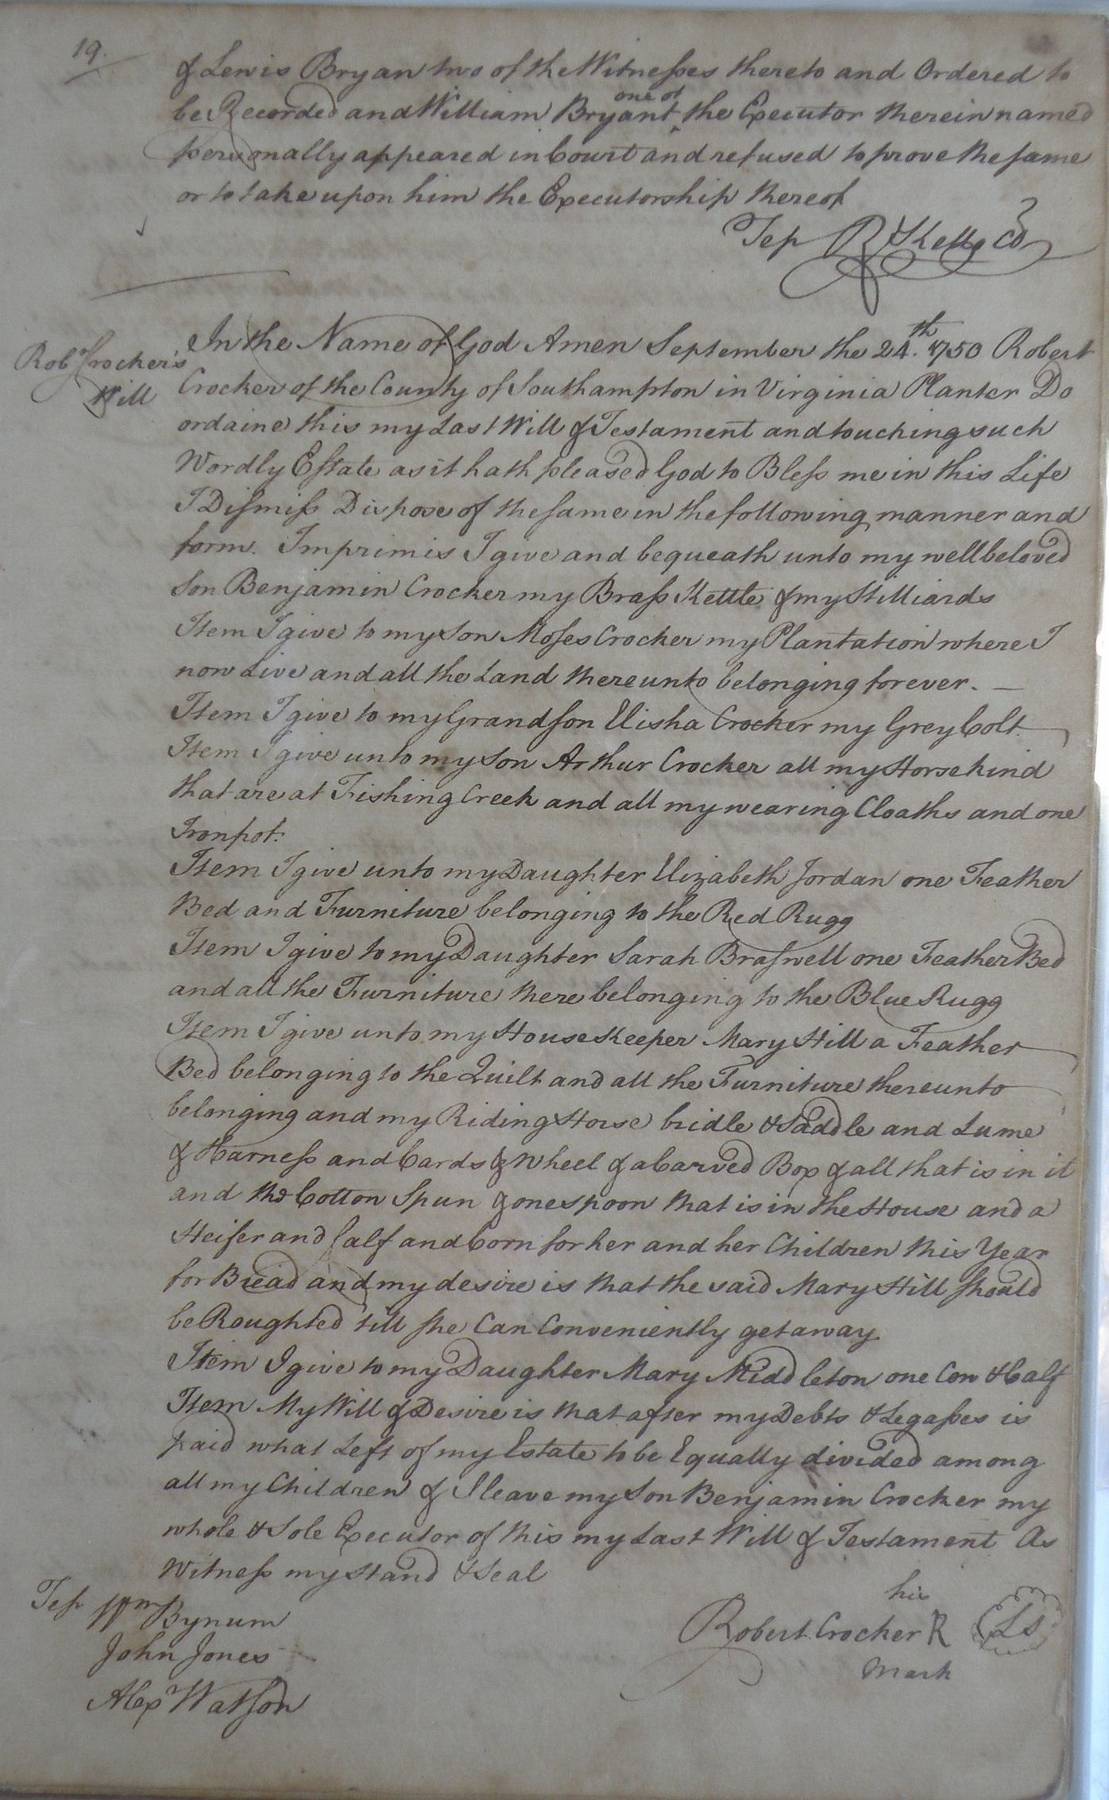 19.
of Lewis Bryan two of the Witnesses thereto and Ordered to
be Recorded and William Bryant one of the Executor therein named
personally appeared in Court and refused to prove the same
or to take upon him the Executorship thereof
Test R Kello CD
Robt Crocker's
Will
In the Name of God Amen September the 24.th 1750 Robert
Crocker of the County of Southampton in Virginia Planter Do
ordaine this my Last Will & Testament and touching such
Wordly Estate as it hath pleased God to Bless me in this Life
I Dismiss Dispose of the same in the following manner and
form. Imprimis I give and bequeath unto my well beloved
Son Benjamin Crocker my Brass Kettle & my Stilliards
Item I give to my Son Moses Crocker my Plantation where I
now Live and all the Land thereunto belonging forever. —
Item I give to my Grandson Elisha Crocker my Grey Colt
Item I give unto my Son Arthur Crocker all my Horse kind
that are at Fishing Creek and all my wearing Cloaths and one
Iron pot.
Item I give unto my Daughter Elizabeth Jordan one Feather
Bed and Furniture belonging to the Red Rugg
Item I give to my Daughter Sarah Braswell one Feather Bed
and all the Furniture there belonging to the Blue Rugg
Item I give unto my House Keeper Mary Hill a Feather
Bed belonging to the Quilt and all the Furniture thereunto
belonging and my Riding Horse bridle & Saddle and Lume
& Harness and Cards & Wheel & a Carved Box & all that is in it
and the Cotton Spun & one spoon that is in the House and a
Heifer and Calf and Corn for her and her Children this Year
for Bread and my desire is that the said Mary Hill should
be Roughted till she Can Conveniently get away
Item I give to my Daughter Mary Middleton one Cow & Calf
Item My Will & Desire is that after my Debts & Legasses is
paid what Left of my Estate to be Equally divided among
all my Children & I leave my Son Benjamin Crocker my
whole & Sole Executor of this my Last Will & Testament As
Witness my Hand & Seal
Test Wm Bynum
John Jones
Alexr Watson
his
Robert Crocker R
Mark
LS